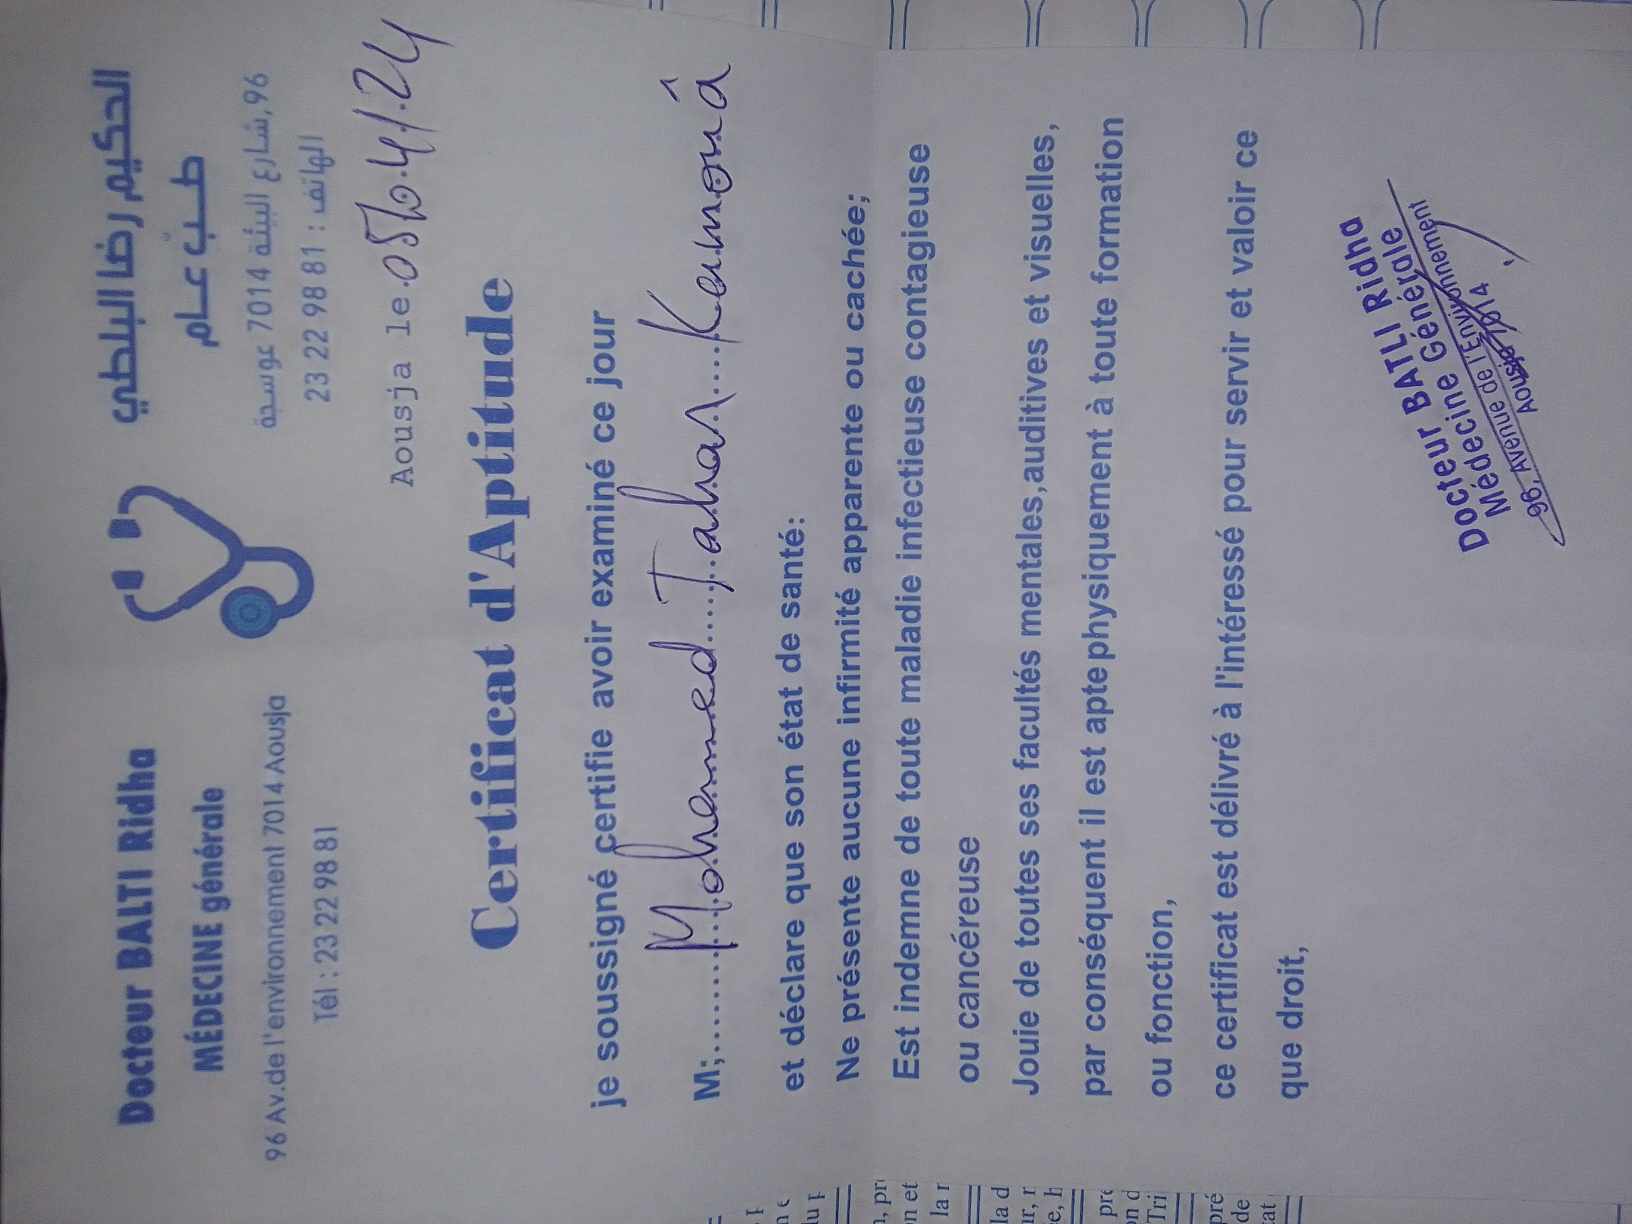 Docteur BALTI Ridha
MÉDECINE générale
96 Av.de l'environnement 7014 Aousja
Tél : 23 22 98 81
الحكيم رضا البلطي
طب عام
96,شارع البيئة 7014 عوسجة
الهاتف : 81 98 22 23
Aousja le 05/04/24
Certificat d'Aptitude
je soussigné certifie avoir examiné ce jour
M;........Mohammed Tahar Kammoun
et déclare que son état de santé:
Ne présente aucune infirmité apparente ou cachée;
Est indemne de toute maladie infectieuse contagieuse
ou cancéreuse
Jouie de toutes ses facultés mentales,auditives et visuelles,
par conséquent il est apte physiquement à toute formation
ou fonction,
ce certificat est délivré à l'intéressé pour servir et valoir ce
que droit,
Docteur BATLI Ridha
Médecine Générale
96, Avenue de l'Environnement
Aousja 7014